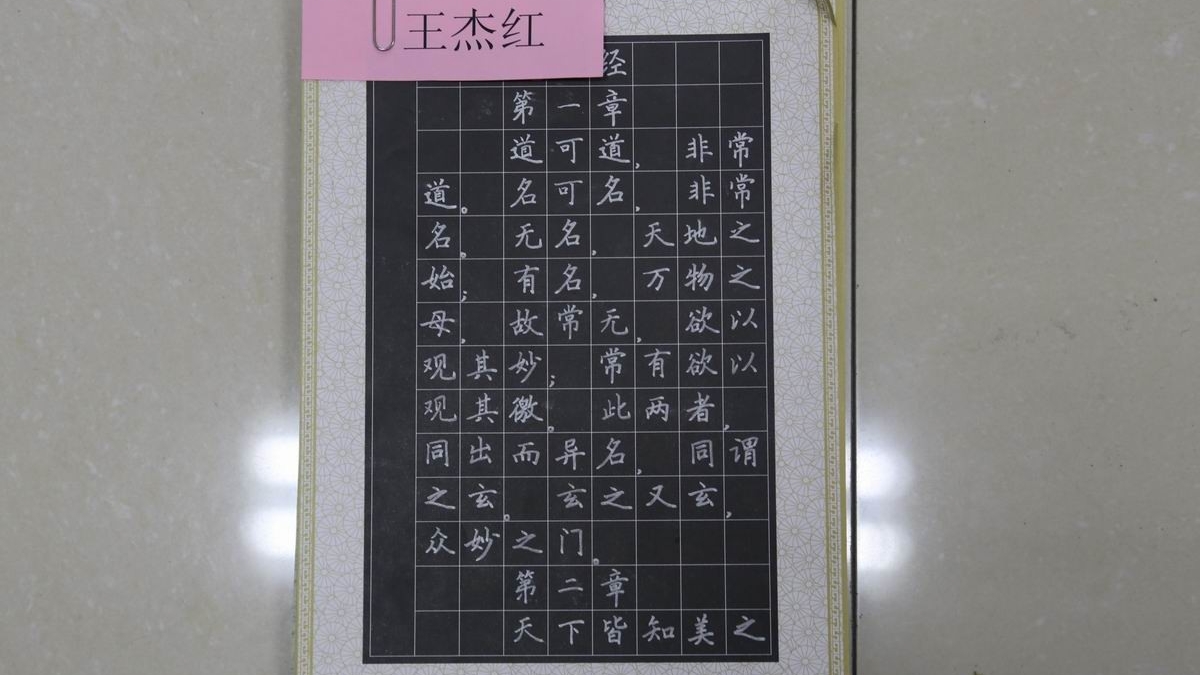 王杰红
经
第一章
道可道，非常
道。名可名，非常
名。无名，天地之
始；有名，万物之
母，故常无，欲以
观其妙；常有欲以
观其徼。此两者，
同出而异名，同谓
之玄。玄之又玄，
众妙之门。
第二章
天下皆知美之